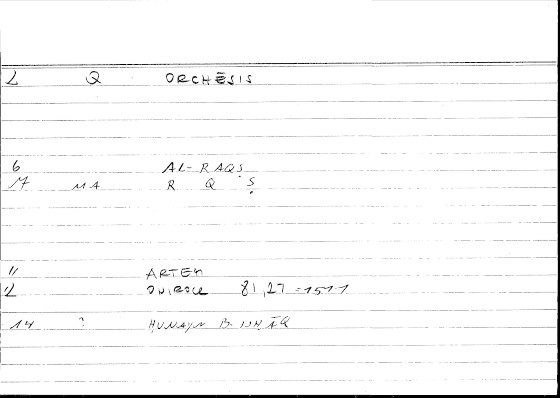 2 Q ORCHĒSIS
6 AL-RAQṢ
7 MA R Q Ṣ
11 ARTEM
12 ONIROCR 81,27 = 151,1
14 ? HUNAYN B. ISḤĀQ